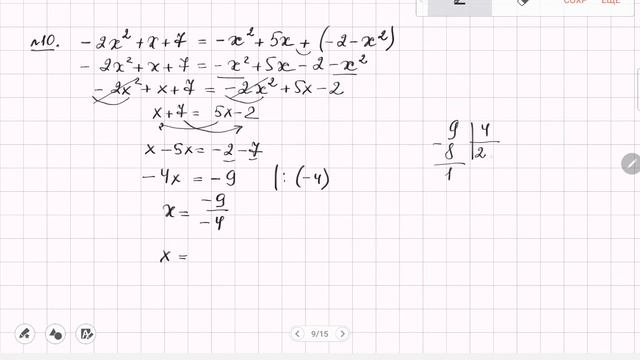 №10. -2x² + x + 7 = -x² + 5x + (-2 - x²)
-2x² + x + 7 = -x² + 5x - 2 - x²
-2x² + x + 7 = -2x² + 5x - 2
x + 7 = 5x - 2
x - 5x = -2 - 7
-4x = -9 |: (-4)
x = -9/-4
x =
- 9 | 4
8 | 2
1
9/15
СОХР ЕЩЕ